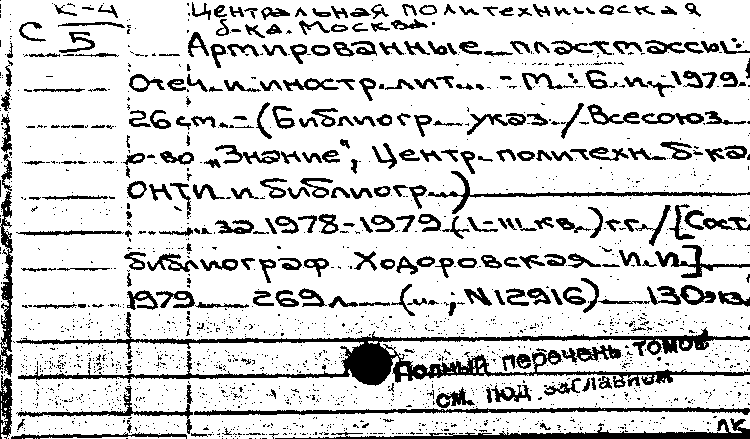 К-4
С 5
Центральная политехническая
б-ка. Москва.
Армированные пластмассы:
Отеч. и иностр. лит... - М.: Б. и., 1979.
26 см. - (Библиогр. указ. / Всесоюз.
о-во „Знание", Центр. политехн. б-ка,
ОНТИ и библиогр...)
... за 1978-1979 (I-III кв.) г.г. / [Сост.
библиограф Ходоровская И.И.]
1979. 269 л. (и. ; N 12916) 130 экз.
Полный перечень томов
см. под заглавием
ЛК